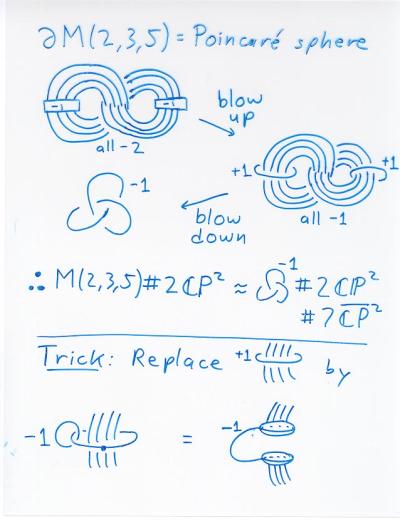 ∂M(2,3,5) = Poincaré sphere
-1 -1
all -2
blow
up
+1 +1
all -1
-1
blow
down
∴ M(2,3,5)#2ℂP² ≈ -1 #2ℂP²
#7\overline{ℂP}²
Trick: Replace +1 by
-1 = -1